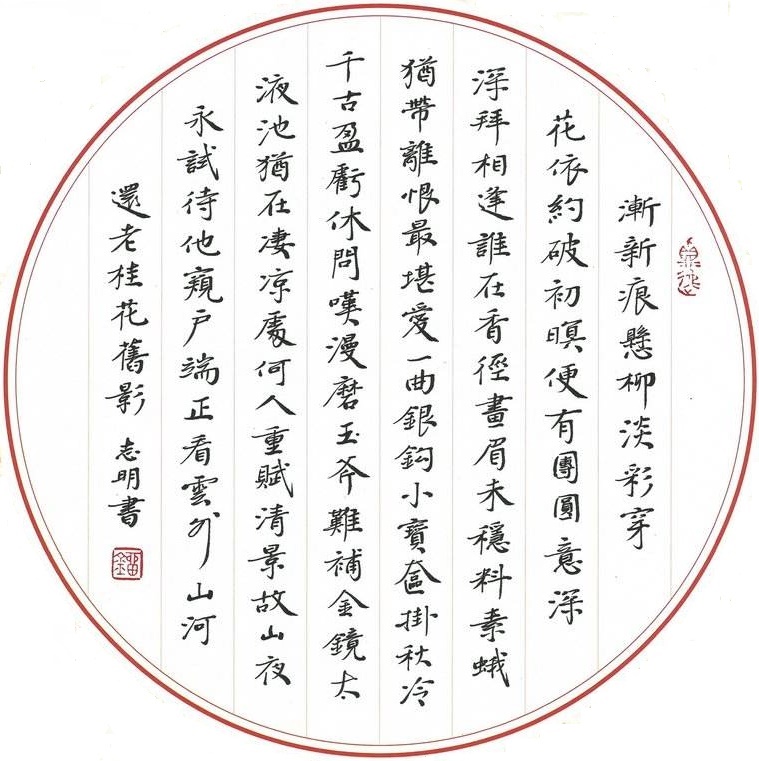 漸新痕懸柳淡彩穿
花依約破初暝便有團圓意深
深拜相逢誰在香徑畫眉未穩料素蛾
猶帶離恨最堪愛一曲銀鈎小寶奩掛秋冷
千古盈虧休問嘆漫磨玉斧難補金鏡太
液池猶在淒凉處何人重賦清景故山夜
永試待他窺户端正看雲外山河
還老桂花舊影 志明書